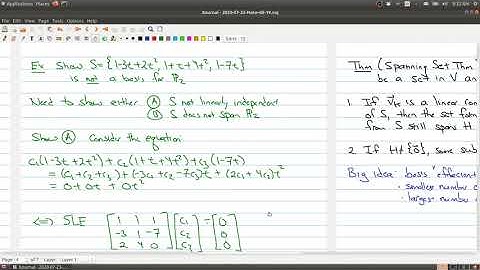 Applications Places
Xournal - 2020-07-23-Note-05-19.xoj
Ex Show S={1-3t+2t², 1+t+4t², 1-7t}
is not a basis for P₂
Need to show either (A) S not linearly independent
(B) S does not span P₂
Show (A) Consider the equation
C₁(1-3t+2t²)+C₂(1+t+4t²)+C₃(1-7t)
=(C₁+C₂+C₃)+(-3C₁+C₂-7C₃)t+(2C₁+4C₂)t²
=0+0t+0t²
<=> SLE [1 1 1; -3 1 -7; 2 4 0] [C₁; C₂; C₃] = [0; 0; 0]
Thm (Spanning Set Thm
be a set in V an
1. If v⃗ₖ is a linear com
of S, then the set for
from S still spans H.
2. If H≠{0⃗}, some sub
Big idea: basis "efficient
• smallest number o
• largest number o